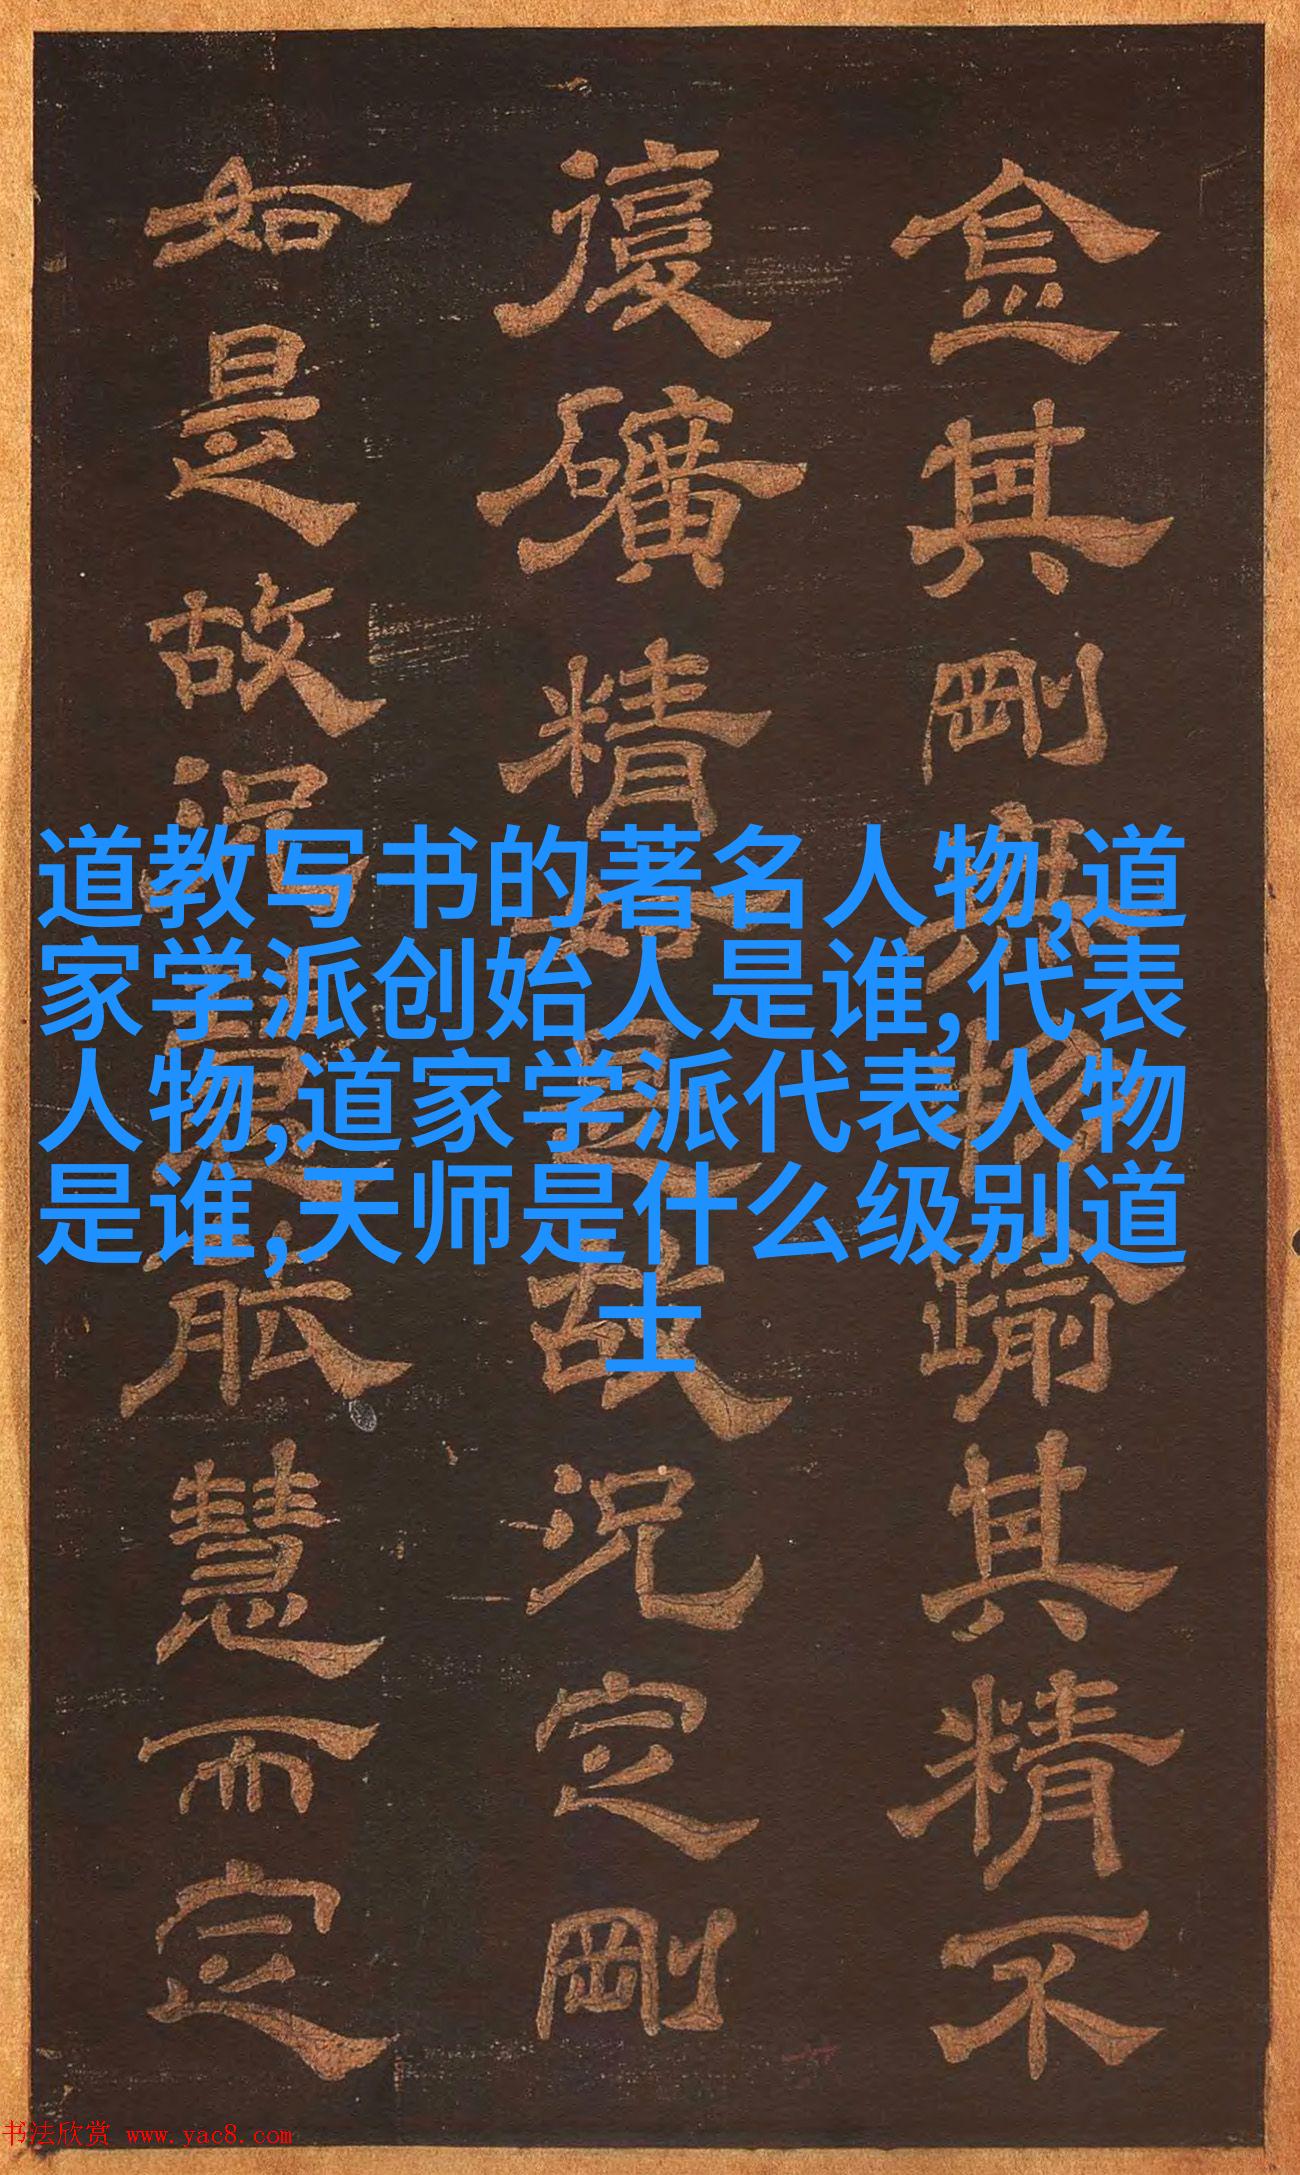 金其剛無物踰其精不
復礦精如是故況定剛
如是故況能慧而定
道教写书的著名人物,道
家学派创始人是谁,代表
人物,道家学派代表人物
是谁,天师是什么级别道
士
书法欣赏 www.yac8.com